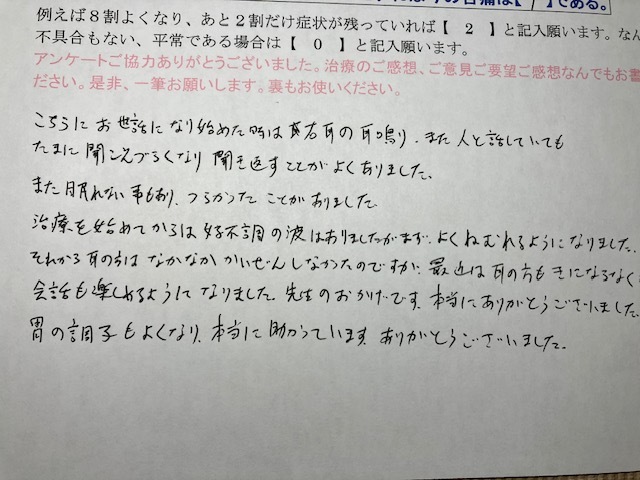 の苦痛は【 】である。
例えば8割よくなり、あと2割だけ症状が残っていれば【 2 】と記入願います。なん
不具合もない、平常である場合は【 0 】と記入願います。
アンケートご協力ありがとうございました。治療のご感想、ご意見ご要望ご感想なんでもお書
ださい。是非、一筆お願いします。裏もお使いください。
こちらに お世話になり始めた時は 右耳の耳鳴り、また人と話していても
たまに 聞こえづらくなり 聞き返すことが よくありました。
また 眠れない事もあり、つらかった ことがありました
治療を始めてからは 好不調の波はありましたが まず、よくねむれるようになりました。
それから 耳の方は なかなか かいぜんしなかったのですが、最近は 耳の方も きになるなく
会話も楽しめるように なりました。先生のおかげです。本当にありがとうございました。
胃の調子もよくなり、本当に助かっています。ありがとうございました。